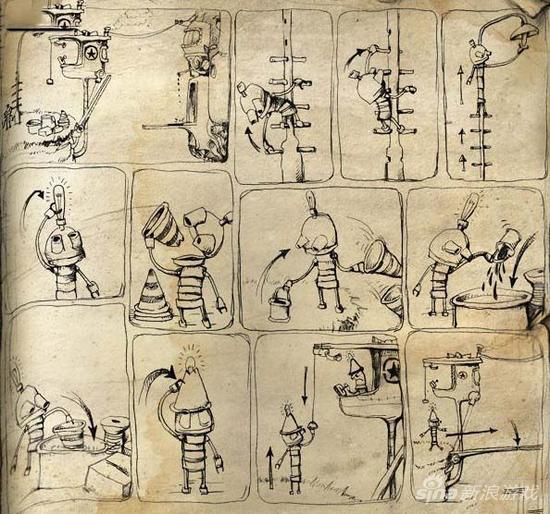 sina新浪游戏